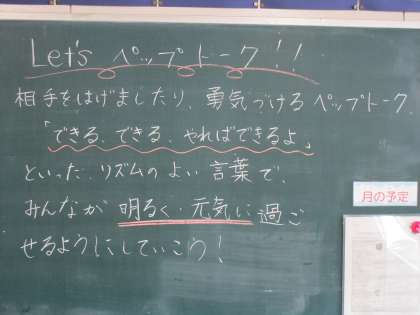 Let's ペップトーク!!
相手をはげましたり、勇気づけるペップトーク。
「できる、できる、やればできるよ」
といった、リズムのよい言葉で、
みんなが明るく・元気に過ご
せるようにしていこう!
月の予定